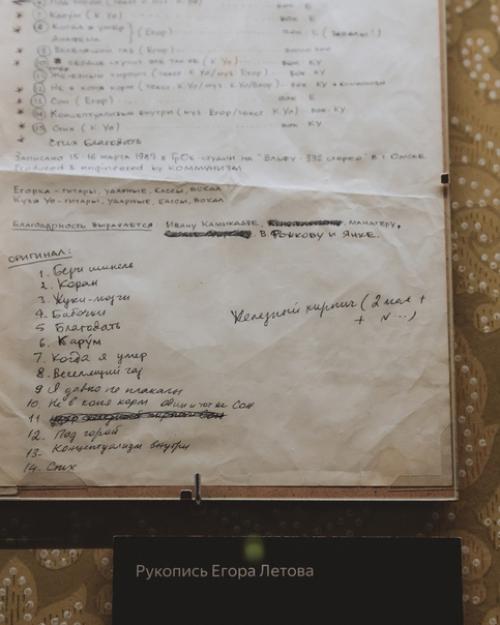 Карум (К Уо) вок К
Когда я умер } (Егор) вок Е
Анафема
Веселящий газ (Егор)
вок КУ
Железный кирпич (текст К Уо/муз Егор) вок КУ
Не в коня корм (текст К Уо/муз К Уо/Егор) вок КУ
Сон (Егор) вок Е
Концептуализм внутри (муз Егор/текст К Уо) вок КУ
Стих (К Уо) вок КУ
Стих Благодать
Записано 15-16 марта 1989 в ГрОб-студии на стерео" в г Омске
Produced & engineered by КОММУНИЗМ
Егорка - гитары, ударные, бассы, вокал
Кузя Уо - гитары, ударные, бассы, вокал
Благодарность выражается Ивану Камикадзе, менагеру,
В. Рожкову и Янке.
ОРИГИНАЛ:
1. Бери шинель
2. Коран
3. Жуки-мозги
4. Бабочки
5 Благодать
6. Карум
7. Когда я умер
8. Веселящий газ
9 Я давно не плакалы
10. Не в коня корм один и тот же Сон
11
12. Под горой
13. Концептуализм внутри
14. Стих
Железный кирпич (2 +
+ ...)
Рукопись Егора Летова